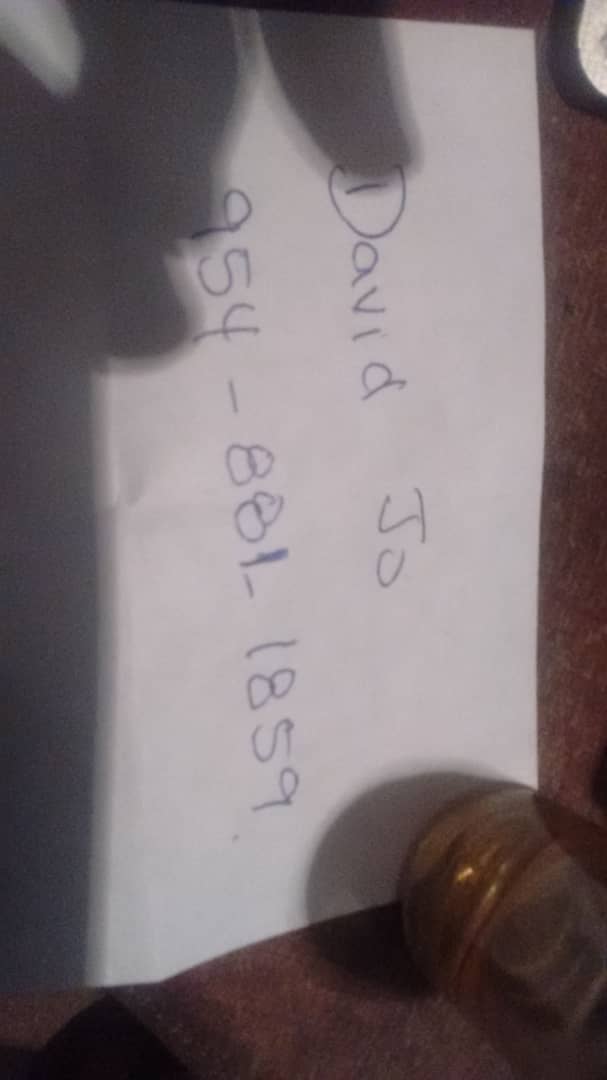 David Jo
954-881-1859